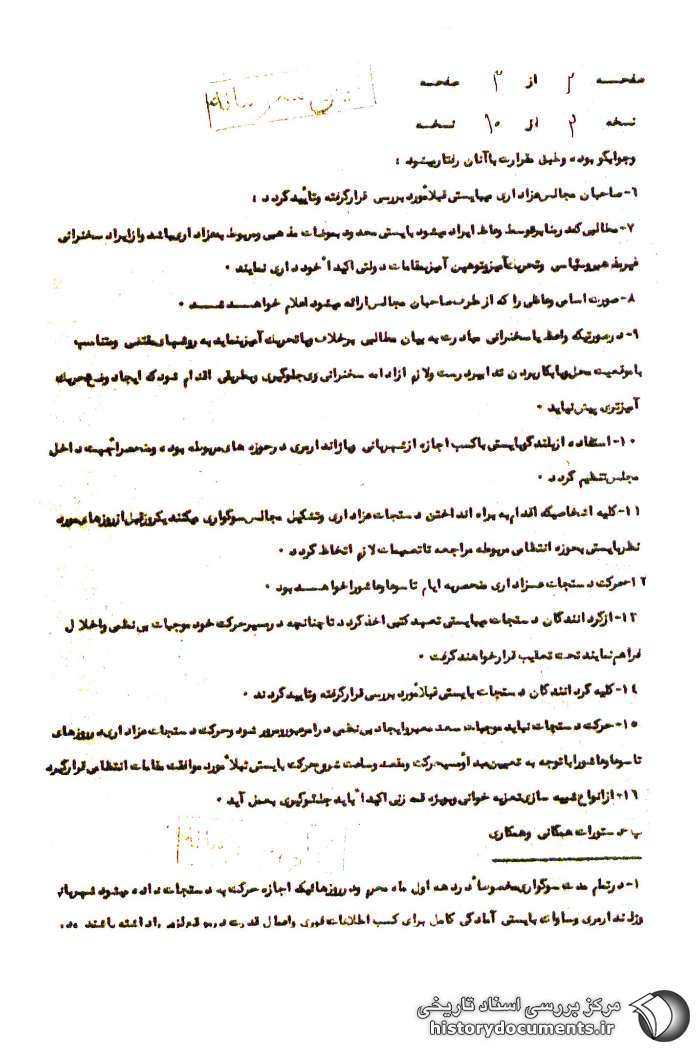 صفحه ۲ از ۳ صفحه
نسخه ۳ از ۱۰ نسخه
وجوابگو بوده وطبق مقررات باآنان رفتار میشود :
۶- صاحبان مجالس عزاداری میبایستی قبلاً مورد بررسی قرارگرفته وتأیید گردد :
۷- مطالبی که در منابر توسط وعاظ ایراد میشود بایستی محدود بموضوعات مذهبی ومربوط به عزاداری باشد واز ایراد سخنرانی
غیرمذهبی وسیاسی وتحریک آمیز وتوهین آمیز بمقامات دولتی اکیداً خودداری نمایند .
۸- صورت اسامی وعاظی را که از طرف صاحبان مجالس ارائه میشود اعلام خواهد شد .
۹- درصورتیکه واعظ یا سخنرانی مبادرت به بیان مطالبی برخلاف ویا تحریک آمیز نماید به روشهای مقتضی ومتناسب
باموقعیت محل وبا بکار بردن تدابیر درست ولازم از ادامه سخنرانی وی جلوگیری وبطریقی اقدام شود که ایجاد وضع تحریک
آمیزتری پیش نیاید .
۱۰- استفاده از بلندگو بایستی باکسب اجازه از شهربانی ویا ژاندارمری در حوزه های مربوطه بوده ومنحصراً جهت داخل
مجلس تنظیم گردد .
۱۱- کلیه اشخاصیکه اقدام به براه انداختن دستجات عزاداری وتشکیل مجالس سوگواری میکنند یکروز قبل از روزهای مورد
نظر بایستی بحوزه انتظامی مربوطه مراجعه تا تصمیمات لازم اتخاذ گردد .
۱۲- حرکت دستجات عزاداری منحصر به ایام تاسوعا وعاشورا خواهد بود .
۱۳- از گردانندگان دستجات میبایستی تعهد کتبی اخذ گردد تا چنانچه در مسیر حرکت خود موجبات بی نظمی واخلال
فراهم نمایند تحت تعقیب قرار خواهند گرفت .
۱۴- کلیه گردانندگان دستجات بایستی قبلاً مورد بررسی قرارگرفته وتایید گردند .
۱۵- حرکت دستجات نباید موجبات سد معبر وایجاد بی نظمی در امر عبور ومرور شود وحرکت دستجات عزاداری در روزهای
تاسوعا وعاشورا باتوجه به تعیین مبدأ ومسیر حرکت ومقصد وساعت شروع حرکت بایستی قبلاً مورد موافقت مقامات انتظامی قرار گیرد
۱۶- از انواع شبیه سازی تعزیه خوانی وبویژه قمه زنی اکیداً باید جلوگیری بعمل آید .
پ - دستورات همگانی وهمکاری
۱- در تمام مدت سوگواری مخصوصاً در دهه اول ماه محرم ودر روزهائیکه اجازه حرکت به دستجات داده میشود شهربانی
وژاندارمری وساواک بایستی آمادگی کامل برای کسب اطلاعات فوری واعمال قدرت در موقع لزوم را داشته باشند
مرکز بررسی اسناد تاریخی
historydocuments.ir